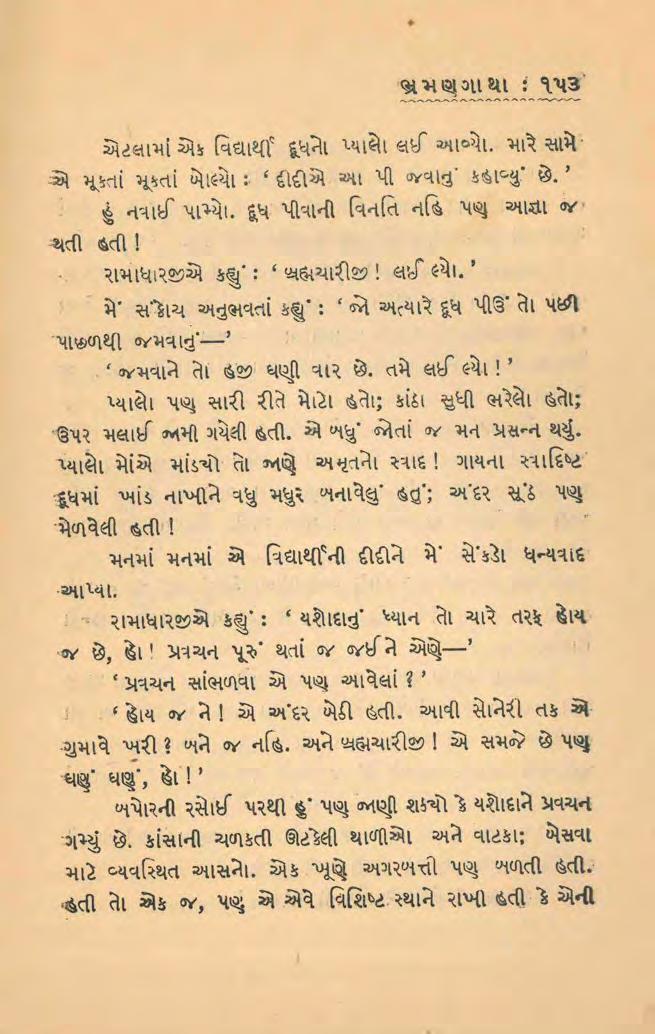 ભ્રમણગાથા : ૧૫૩
એટલામાં એક વિદ્યાર્થી દૂધનો પ્યાલો લઈ આવ્યો. મારે સામે
એ મૂકતાં મૂકતાં બોલ્યો : ‘ દીદીએ આ પી જવાનું કહાવ્યું છે. ’
હું નવાઈ પામ્યો. દૂધ પીવાની વિનતિ નહિ પણ આજ્ઞા જ
થતી હતી !
રામાધારજીએ કહ્યું : ‘ બ્રહ્મચારીજી ! લઈ લ્યો. ’
મેં સંકોચ અનુભવતાં કહ્યું : ‘ જો અત્યારે દૂધ પીઉં તો પછી
પાછળથી જમવાનું—’
‘ જમવાને તો હજી ઘણી વાર છે. તમે લઈ લ્યો ! ’
પ્યાલો પણ સારી રીતે મોટો હતો; કાંઠા સુધી ભરેલો હતો;
ઉપર મલાઈ જામી ગયેલી હતી. એ બધું જોતાં જ મન પ્રસન્ન થયું.
પ્યાલો મોંએ માંડચો તો જાણે અમૃતનો સ્વાદ ! ગાયના સ્વાદિષ્ટ
દૂધમાં ખાંડ નાખીને વધુ મધુર બનાવેલું હતું; અંદર સૂંઠ પણ
મેળવેલી હતી !
મનમાં મનમાં એ વિદ્યાર્થીની દીદીને મેં સેંકડો ધન્યવાદ
આપ્યા.
રામાધારજીએ કહ્યું : ‘ યશોદાનું ધ્યાન તો ચારે તરફ હોય
જ છે, હો ! પ્રવચન પૂરું થતાં જ જઈને એણે—’
‘ પ્રવચન સાંભળવા એ પણ આવેલાં ? ’
‘ હોય જ ને ! એ અંદર બેઠી હતી. આવી સોનેરી તક એ
ગુમાવે ખરી ? બને જ નહિ. અને બ્રહ્મચારીજી ! એ સમજે છે પણ
ઘણું ઘણું, હો ! ’
બપોરની રસોઈ પરથી હું પણ જાણી શકચો કે યશોદાને પ્રવચન
ગમ્યું છે. કાંસાની ચળકતી ઊટકેલી થાળીઓ અને વાટકા; બેસવા
માટે વ્યવસ્થિત આસનો. એક ખૂણે અગરબત્તી પણ બળતી હતી.
હતી તો એક જ, પણ એ એવે વિશિષ્ટ સ્થાને રાખી હતી કે એની